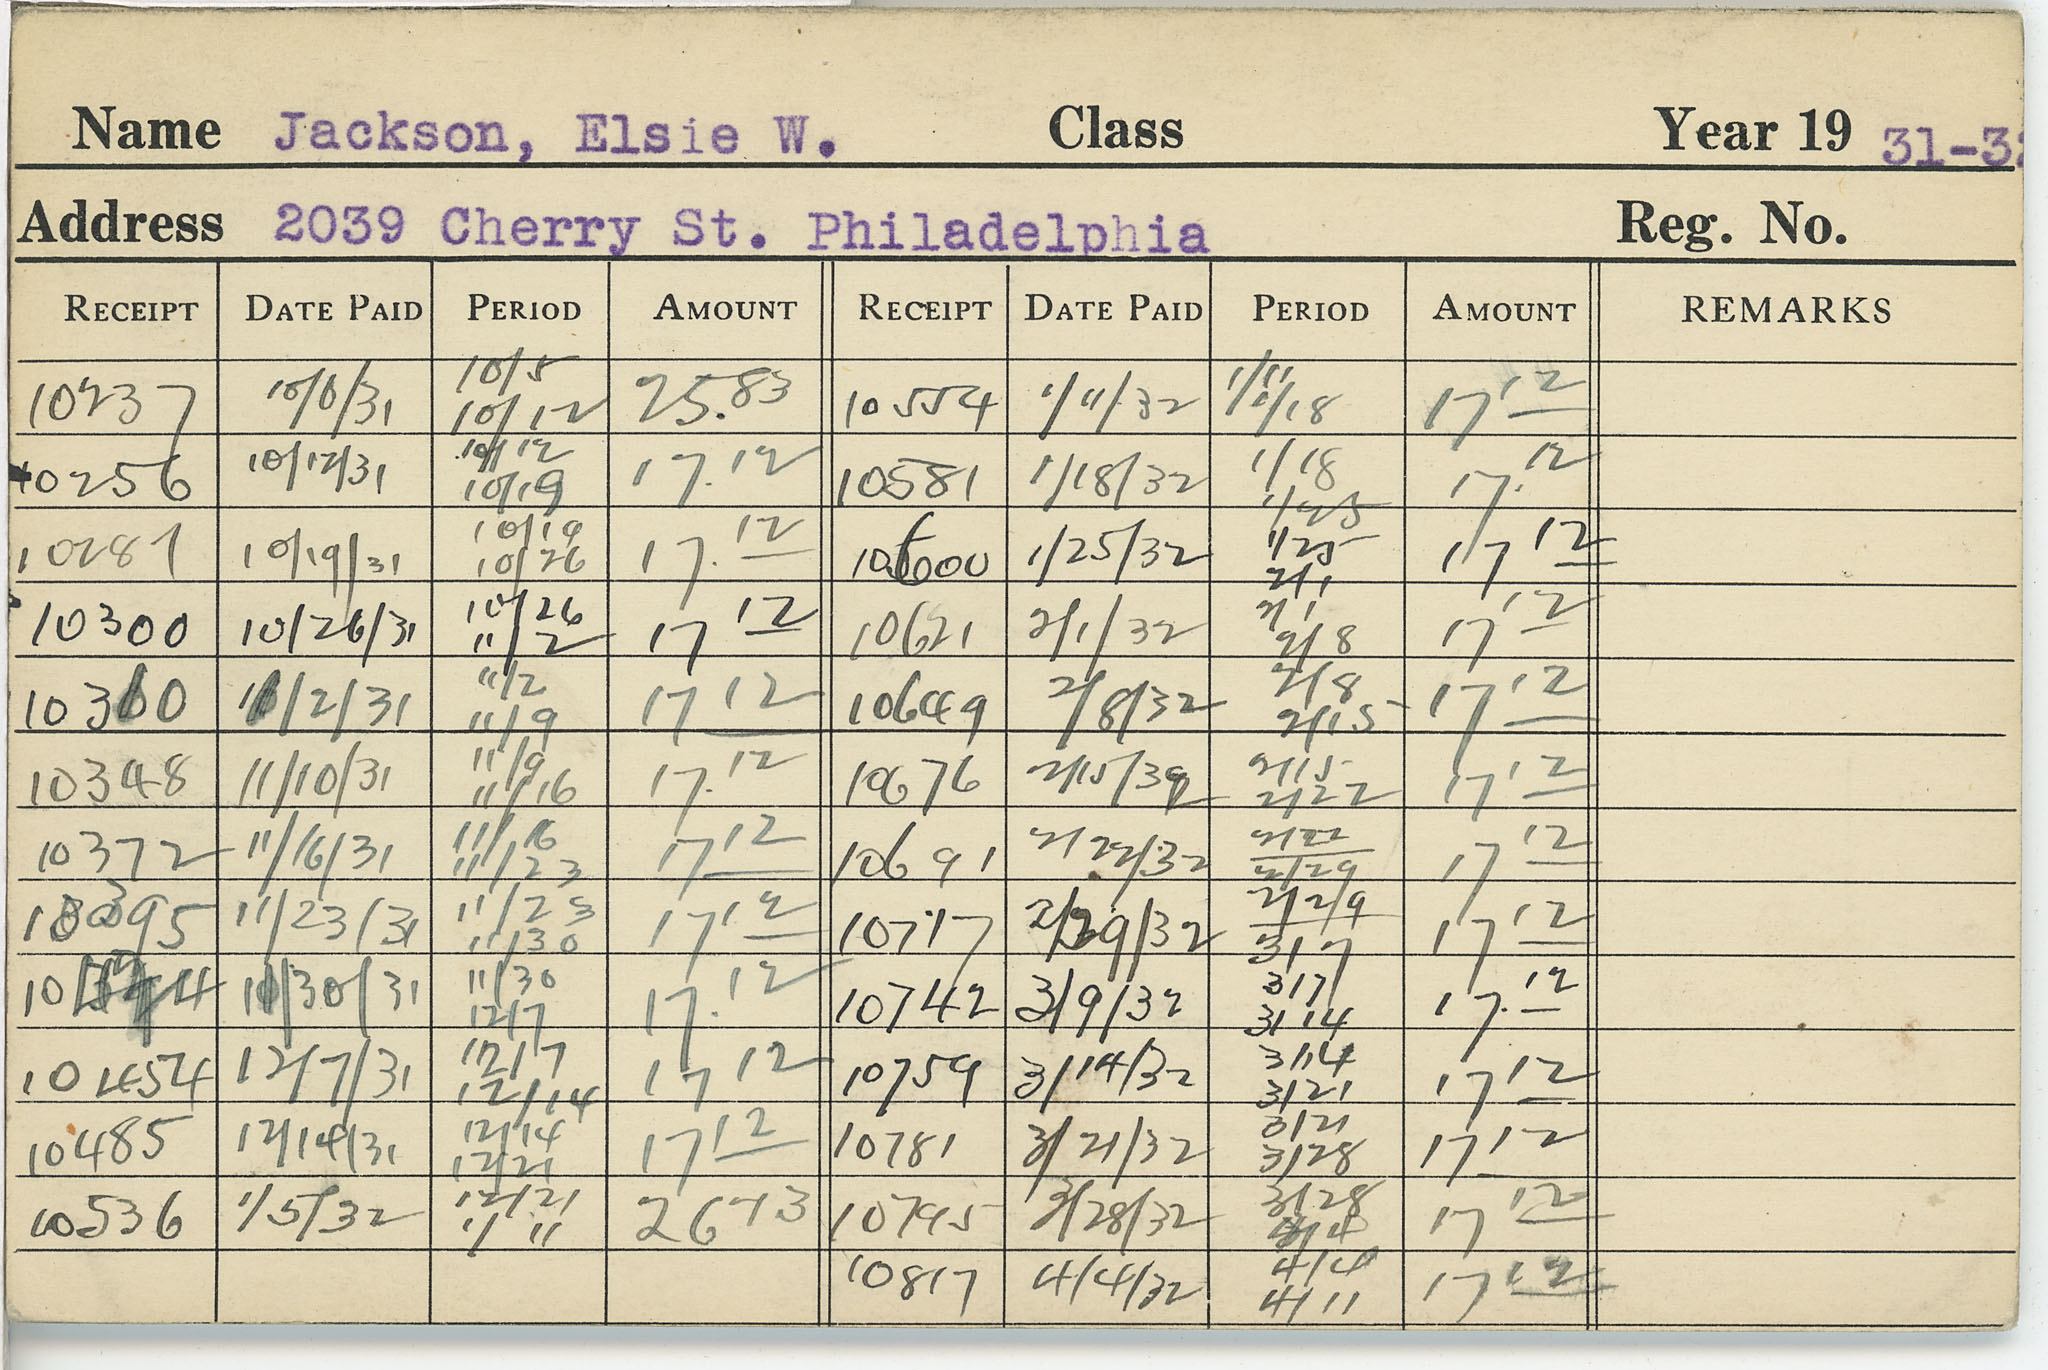 Name Jackson, Elsie W. Class Year 19 31-32
Address 2039 Cherry St. Philadelphia Reg. No.
RECEIPT DATE PAID PERIOD AMOUNT RECEIPT DATE PAID PERIOD AMOUNT REMARKS
10237 10/6/31 10/5 10/12 25.83 10554 1/11/32 1/11 1/18 17 12
10256 10/12/31 10/12 10/19 17.12 10581 1/18/32 1/18 1/25 17.12
10281 10/19/31 10/19 10/26 17.12 10600 1/25/32 1/25 2/1 17 12
10300 10/26/31 10/26 11/2 17 12 10621 2/1/32 2/1 2/8 17 12
10310 11/2/31 11/2 11/9 17 12 10649 2/8/32 2/8 2/15 17 12
10348 11/10/31 11/9 11/16 17.12 10676 2/15/32 2/15 2/22 17 12
10372 11/16/31 11/16 11/23 17 12 10691 2/22/32 2/22 2/29 17 12
10395 11/23/31 11/23 11/30 17 12 10717 2/29/32 2/29 3/7 17 12
11/30/31 11/30 12/7 17.12 10742 3/9/32 3/7 3/14 17.12
10454 12/7/31 12/7 12/14 17 12 10759 3/14/32 3/14 3/21 17 12
10485 12/14/31 12/14 12/21 17 12 10781 3/21/32 3/21 3/28 17 12
10536 1/5/32 12/21 1/11 26 73 10795 3/28/32 3/28 4/4 17 12
10817 4/4/32 4/4 4/11 17 12